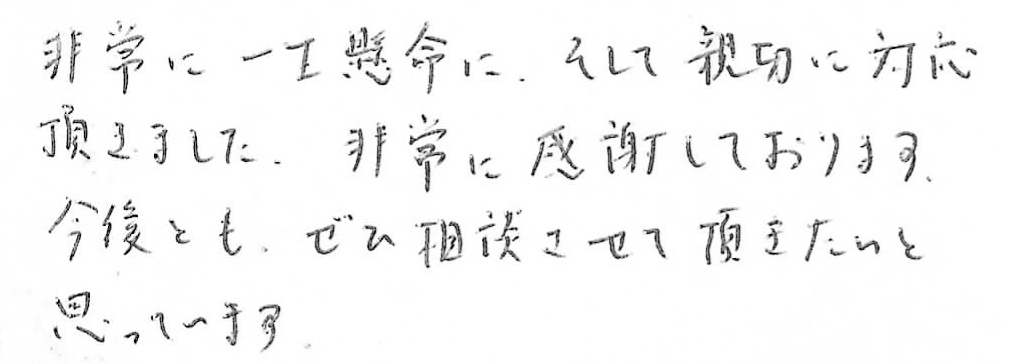 非常に一生懸命に、そして親切に対応
頂きました。非常に感謝しております。
今後とも、ぜひ相談させて頂きたいと
思っています